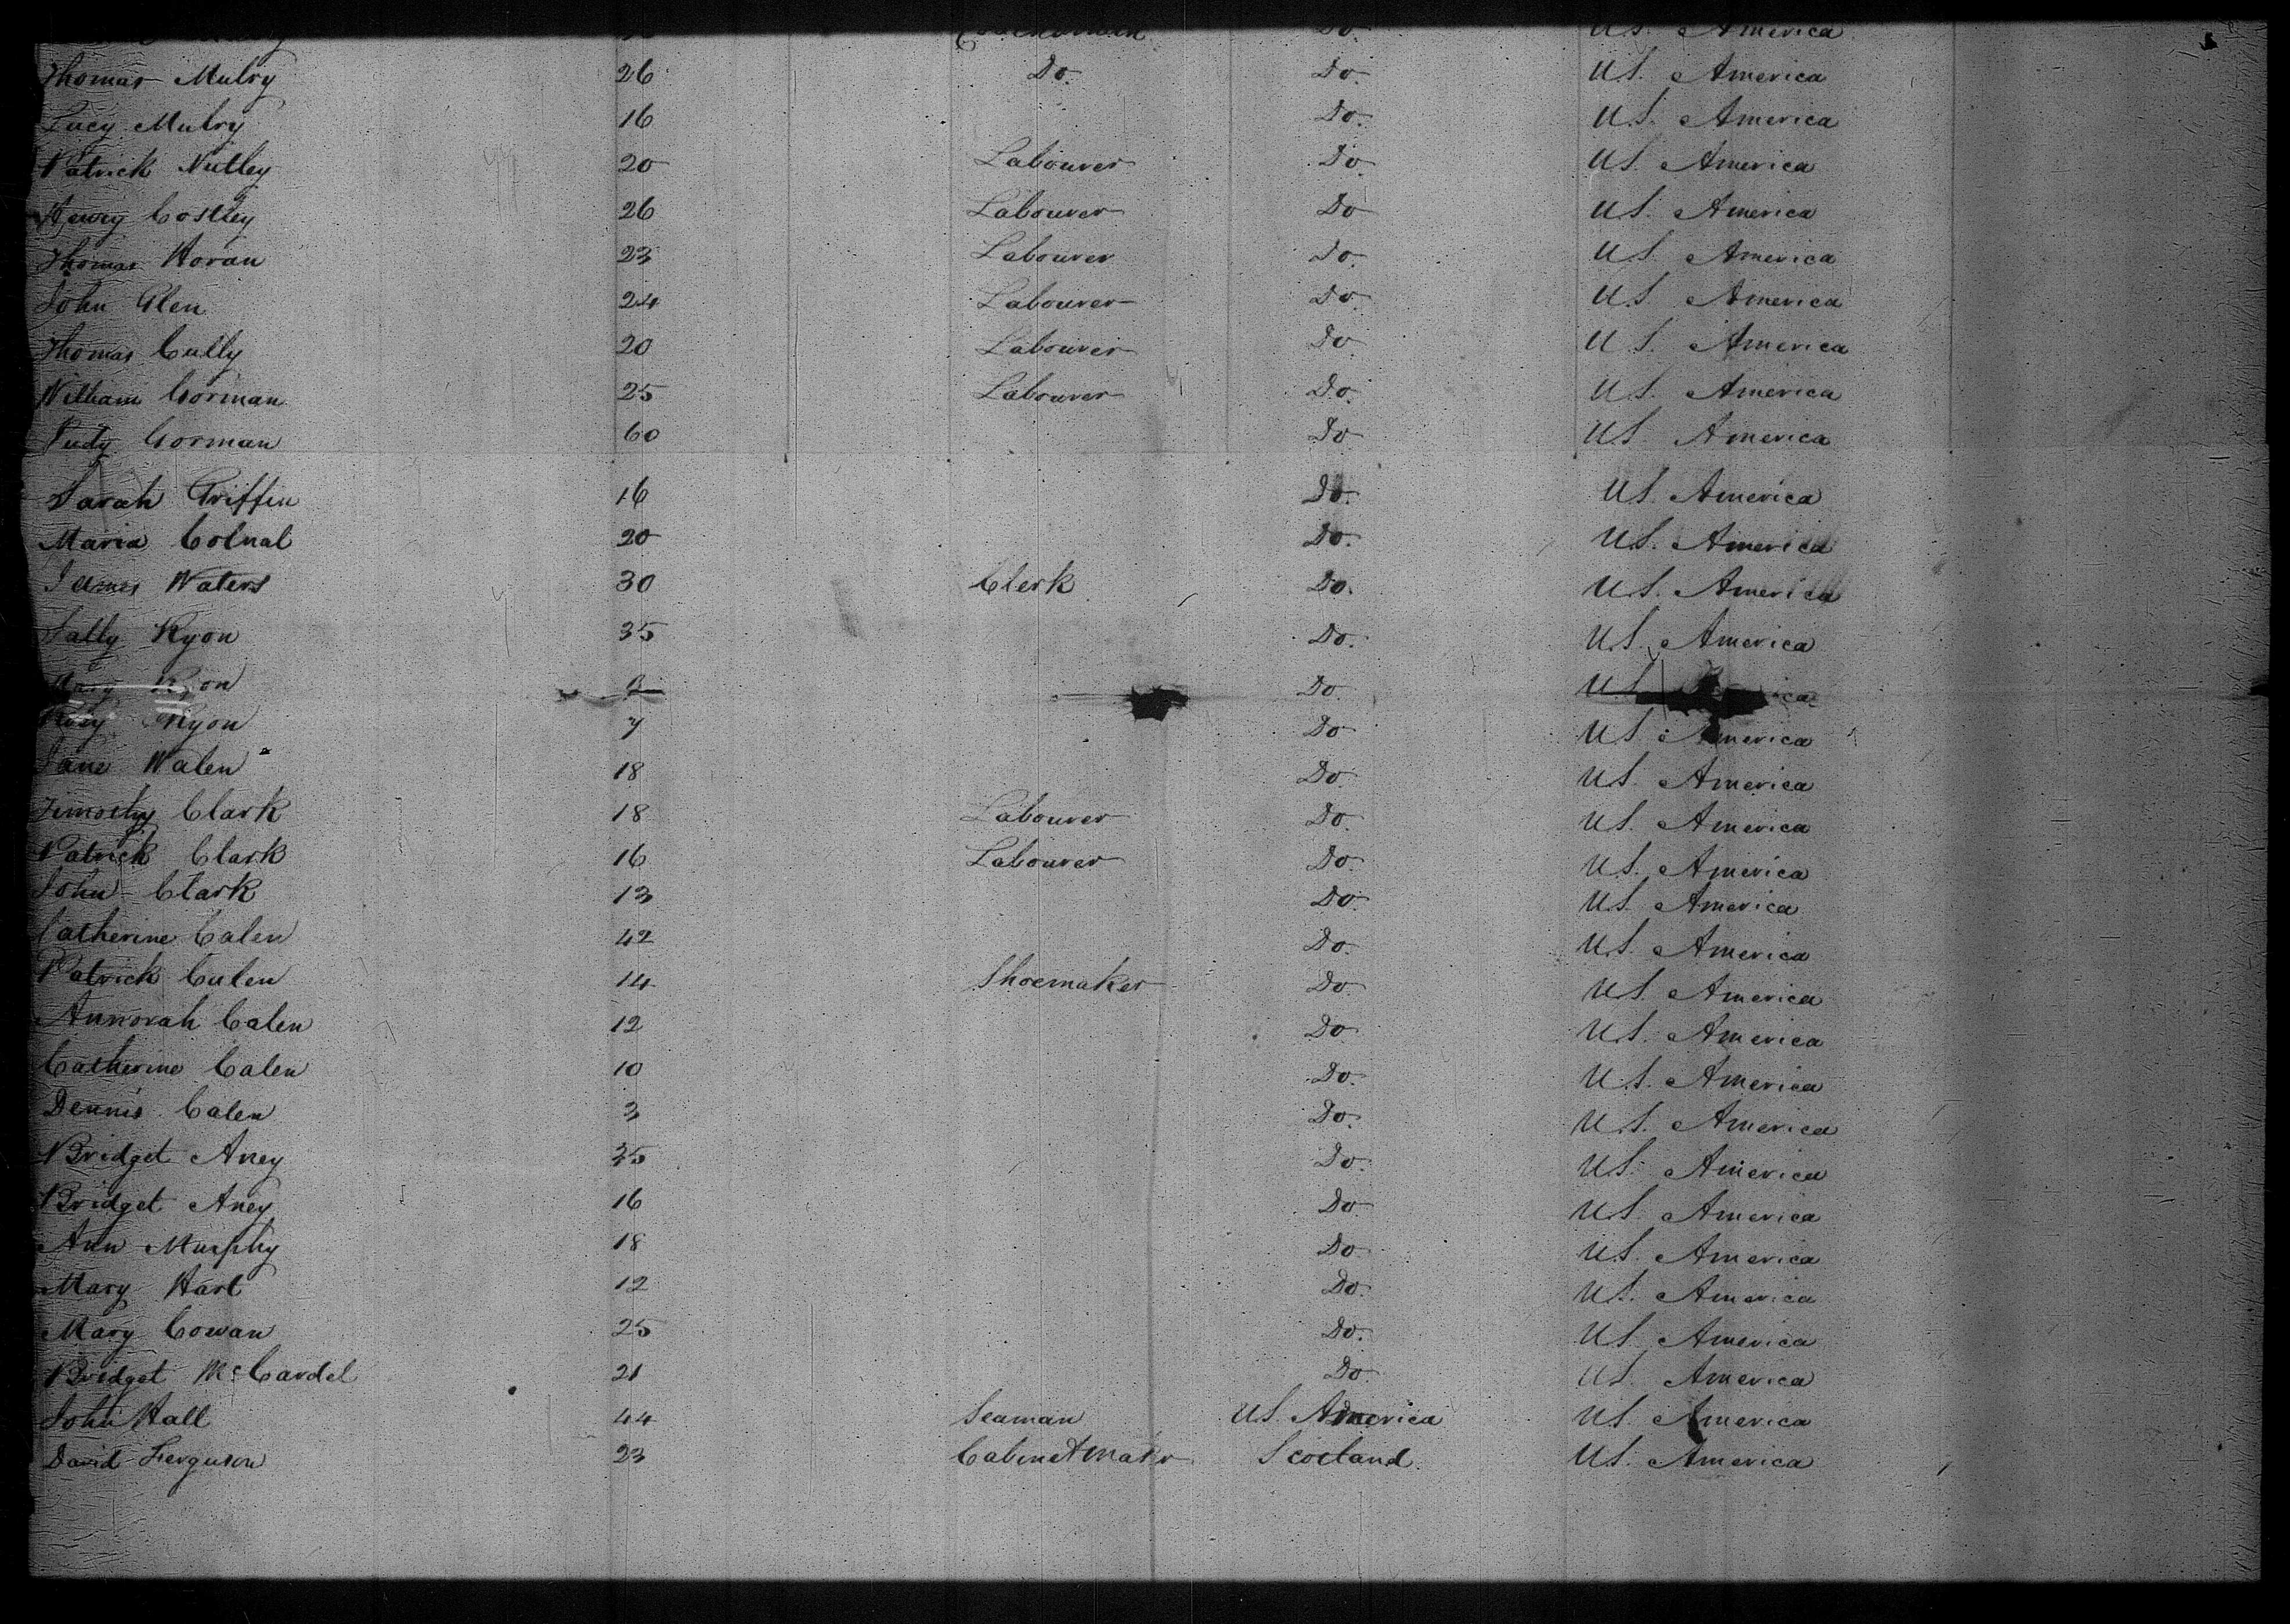 Do. US. America
Thomas Mulry 26 Do. Do. US. America
Lucy Mulry 16 Do. US. America
Patrick Nutley 20 Labourer Do. US. America
Henry Costley 26 Labourer Do US. America
Thomas Horan 23 Labourer Do. US. America
John Glen 24 Labourer Do. US. America
Thomas Cully 20 Labourer Do US. America
William Gorman 25 Labourer Do. US. America
Judy Gorman 60 Do US. America
Sarah Griffin 16 Do. US. America
Maria Colnal 20 Do. US. America
James Waters 30 Clerk Do. US. America
Sally Ryon 35 Do. US. America
Mary Ryon Do. US.
Ryon 7 Do US. America
Jane Walen 18 Do. US. America
Timothy Clark 18 Labourer Do. US. America
Patrick Clark 16 Labourer Do. US. America
John Clark 13 Do. US. America
Catherine Calen 42 Do. US. America
Patrick Culen 14 Shoemaker Do. US. America
Annorah Calen 12 Do. US. America
Catherine Calen 10 Do. US. America
Dennis Calen 3 Do. US. America
Bridget Aney 35 Do. US. America
Bridget Aney 16 Do US. America
Ann Murphy 18 Do. US. America
Mary Hart 12 Do. US. America
Mary Cowan 25 Do. US. America
Bridget McCardel 21 Do. US. America
John Hall 44 Seaman US. America US. America
David Ferguson 23 Cabinetmakr Scotland US. America